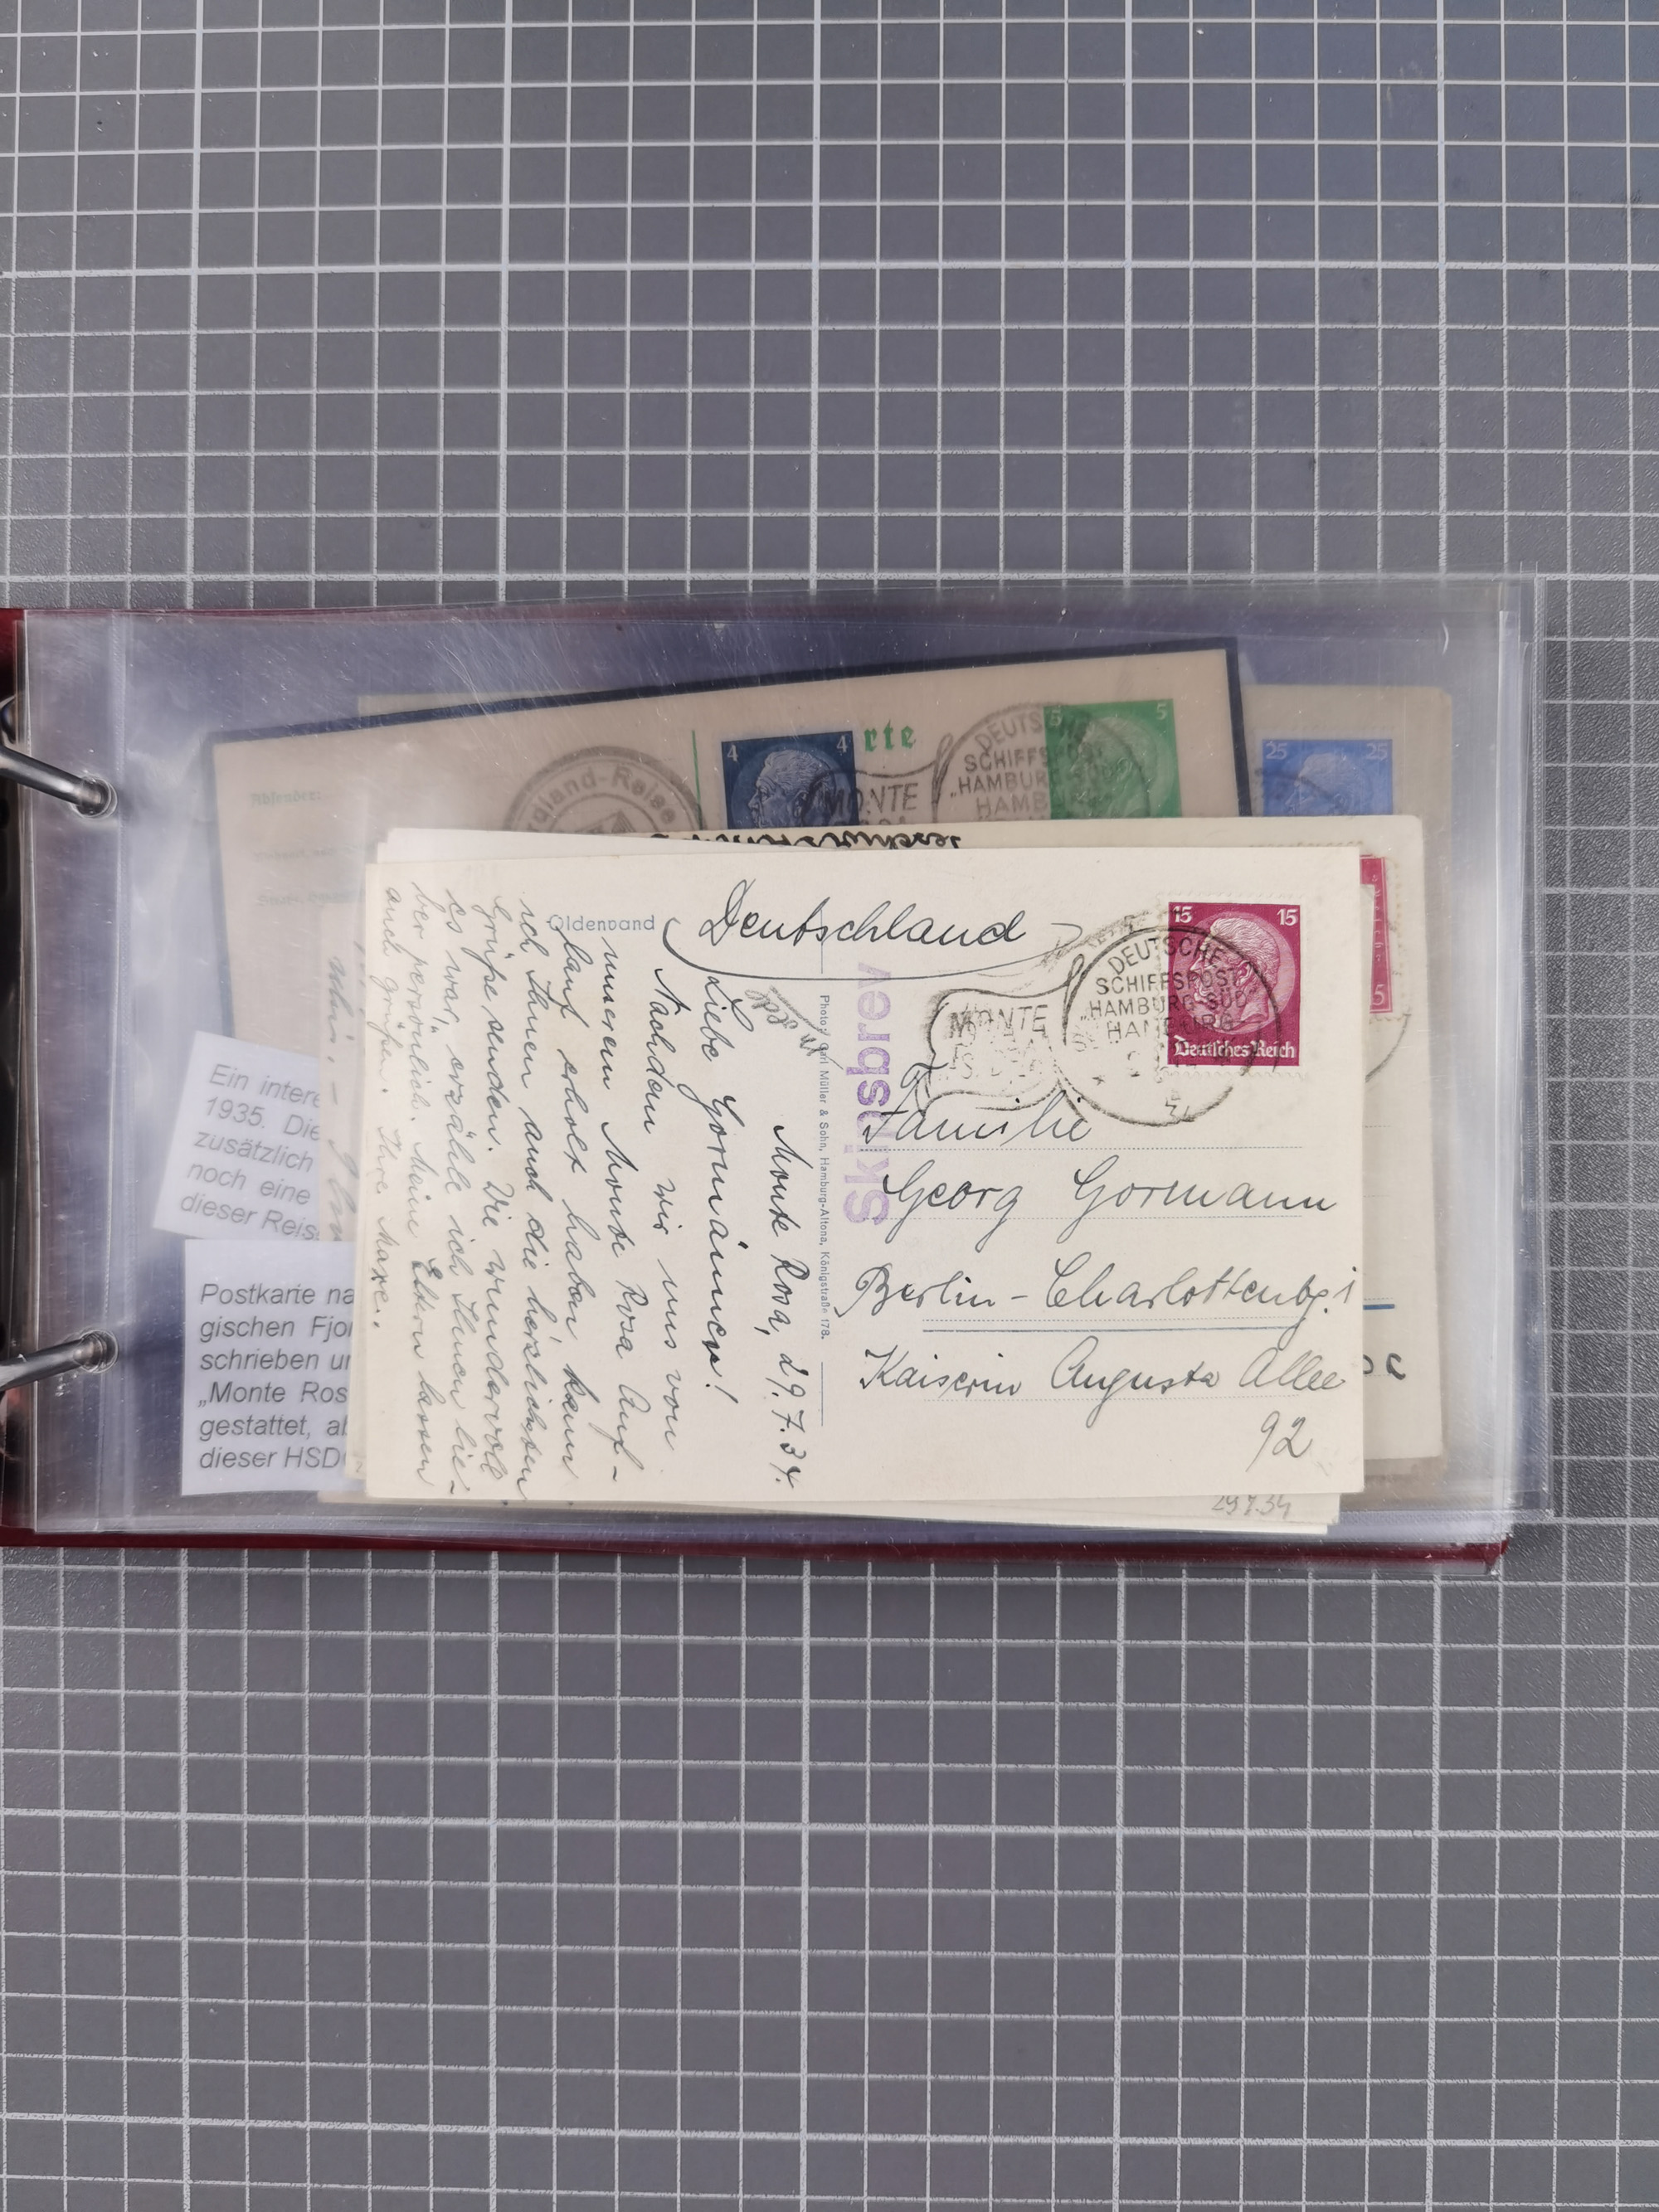 Absender:
4 4
rte
5 5
25 25
gland-Reise
MONTE
DEUTSCHE
SCHIFFSPOST
HAMBURG-SÜD
HAMB
Oldenvand
Deutschland
15 15
Deutsches Reich
MONTE
DEUTSCHE
SCHIFFSPOST
„HAMBURG-SÜD“
HAMBURG
Skibsbrev
Familie
Georg Gormann
Berlin - Charlottenbg. 1
Kaiserin Augusta Allee
92
Photo: Carl Müller & Sohn, Hamburg-Altona, Königstraße 178.
Monte Rosa, 29.7.34.
Liebe Gormänner!
Nachdem wir uns von
unserem Monte Rosa Auf-
lauf erholt haben, kann
ich Ihnen auch die herzlichsten
Grüße senden. Die wundervoll
es war, erzähle ich Ihnen lie-
ber persönlich. Meine Eltern lassen
auch grüßen. Ihre Maxe.
Ein intere
1935. Die
zusätzlich
noch eine
dieser Reis
Postkarte na
gischen Fjor
schrieben un
„Monte Ros
gestattet, ab
dieser HSD
29.7.34